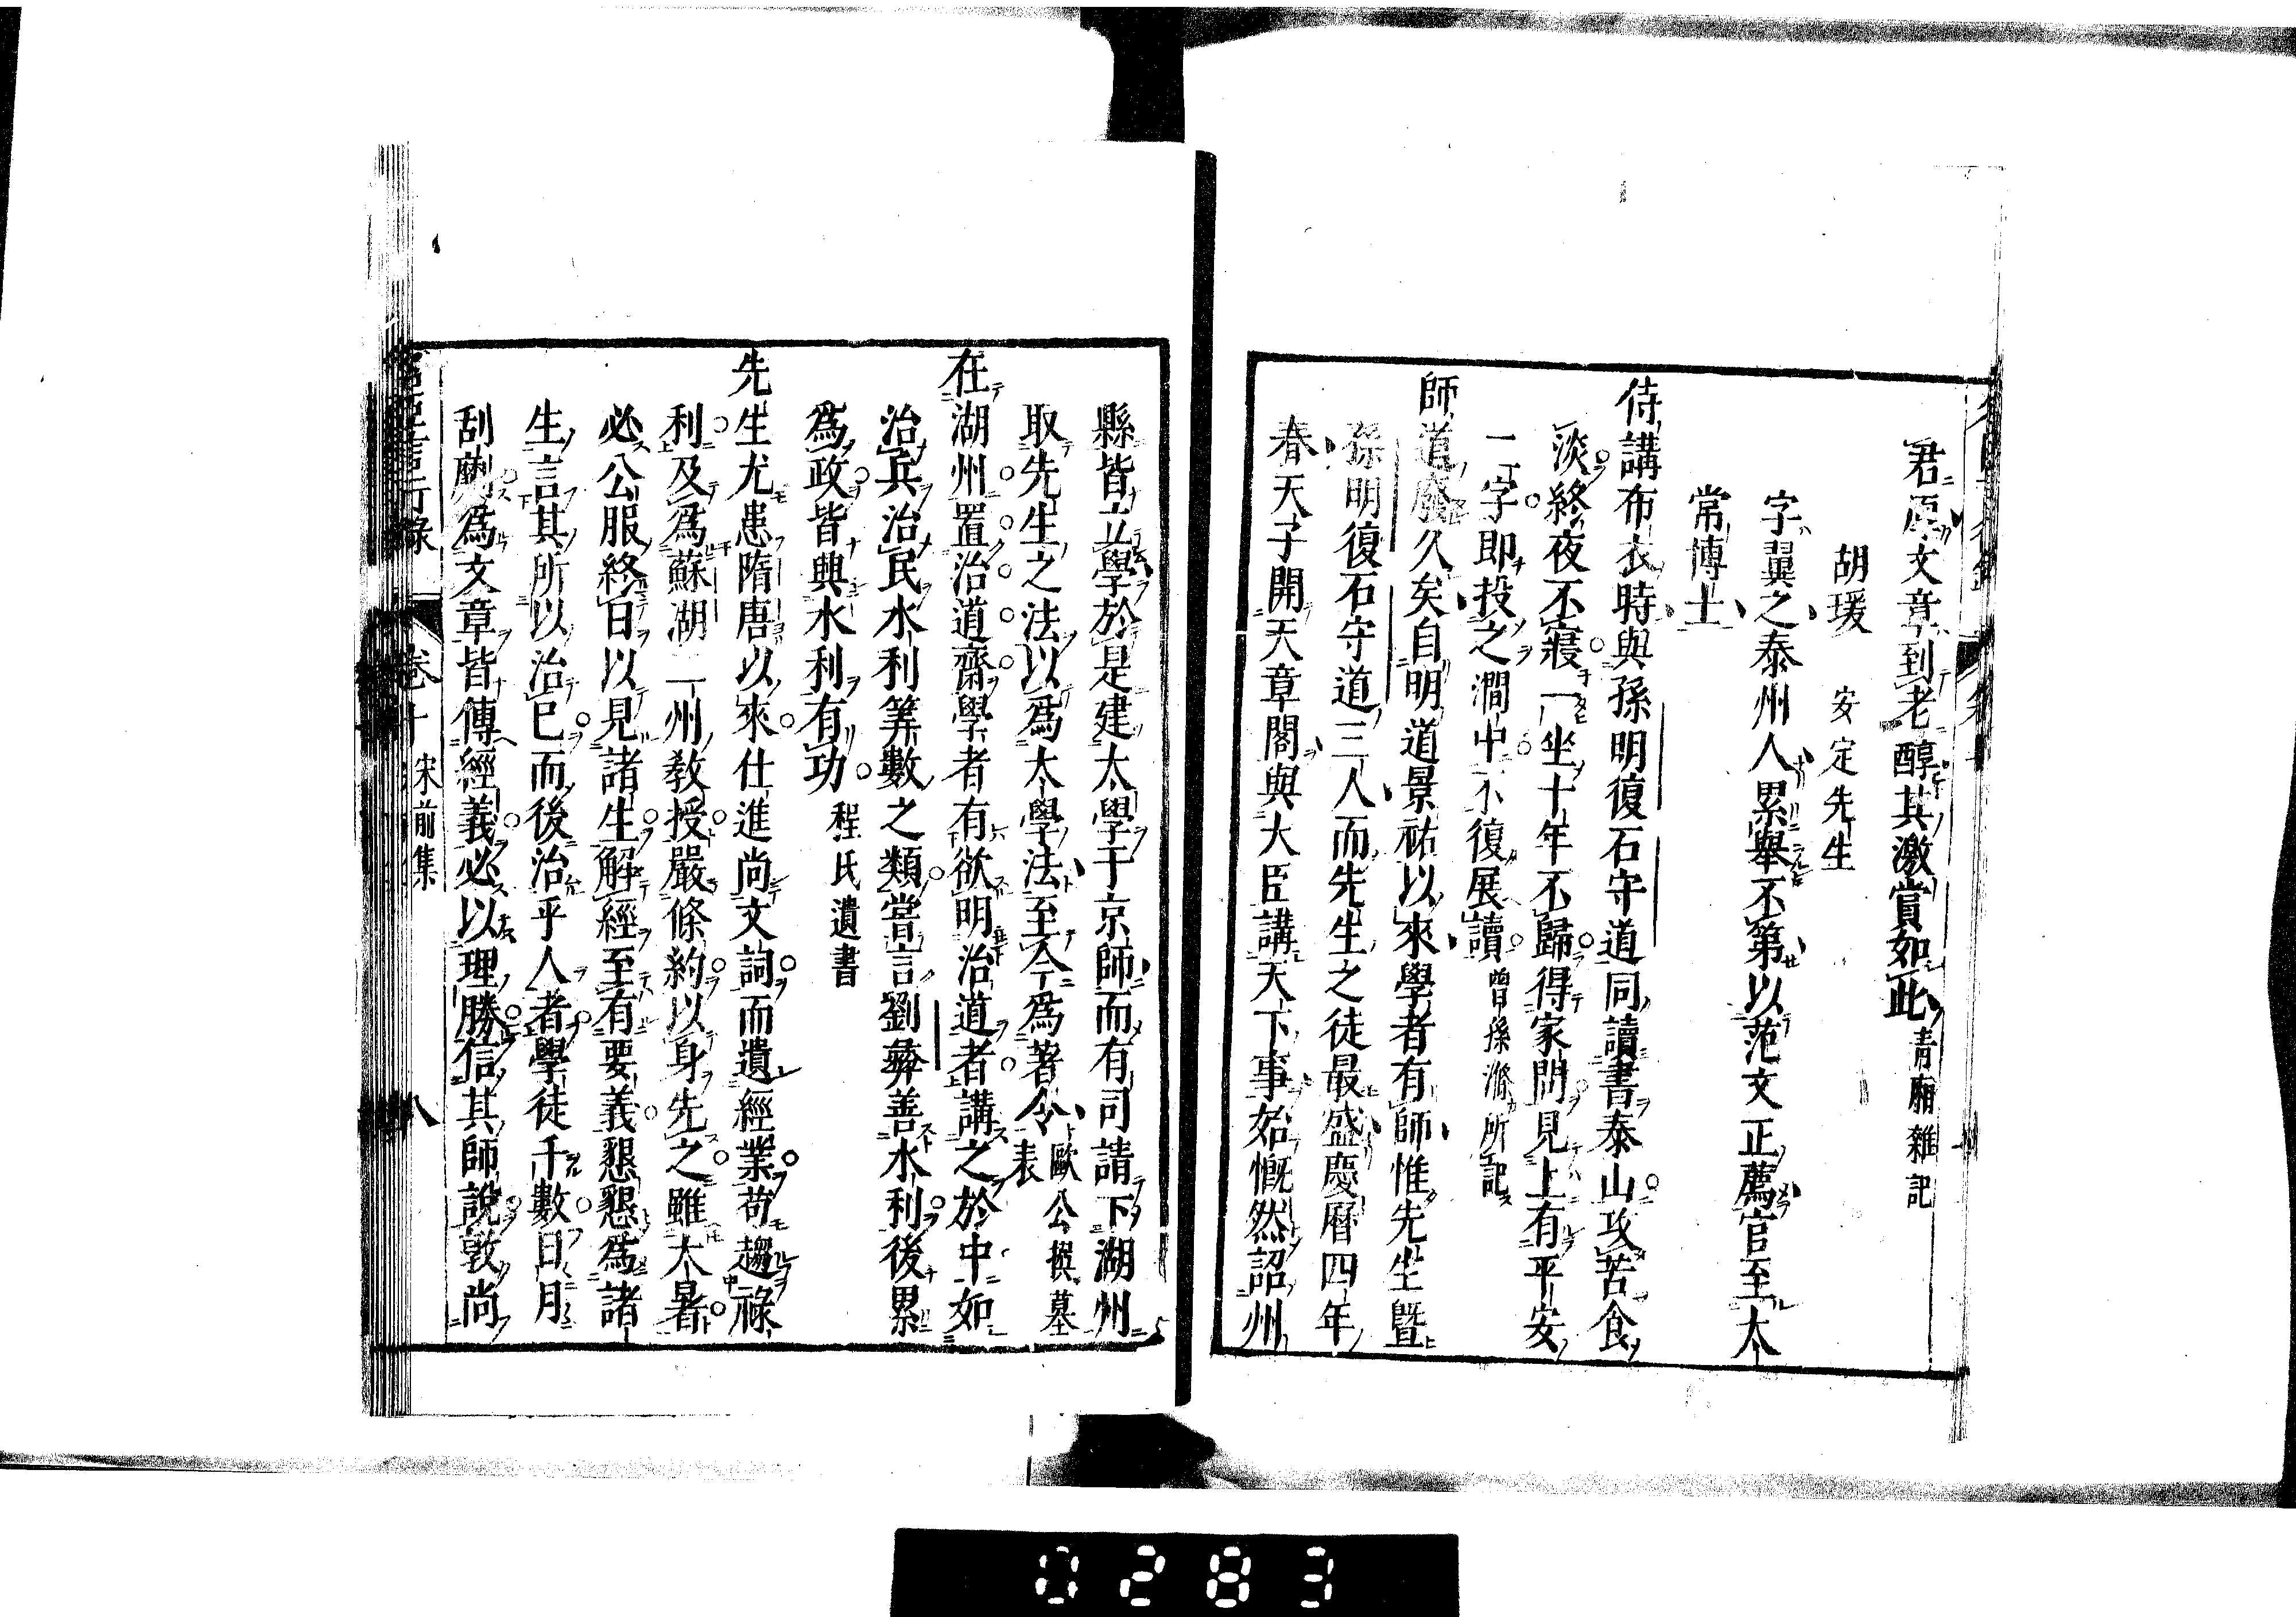 君原文章到老醇其激賞如此青廂雜記
胡瑗 安定先生
字翼之泰州人累舉不第以范文正薦官至太
常博士
侍講布衣時與孫明復石守道同讀書泰山攻苦食
淡終夜不寢一坐十年不歸得家問見上有平安
二字即投之澗中不復展讀曾孫滌所記
師道廢久矣自明道景祐以來學者有師惟先生暨
孫明復石守道三人而先生之徒最盛慶曆四年
春天子開天章閣與大臣講天下事始慨然詔州
縣皆立學於是建太學于京師而有司請下湖州
取先生之法以為太學法至今為著令歐公撰墓表
在湖州置治道齋學者有欲明治道者講之於中如
治兵治民水利筭數之類嘗言劉彝善水利後累
為政皆興水利有功 程氏遺書
先生尤患隋唐以來仕進尚文詞而遺經業苟趨祿
利及為蘇湖二州教授嚴條約以身先之雖大暑
必公服終日以見諸生解經至有要義懇懇為諸
生言其所以治己而後治乎人者學徒千數日月
刮劘為文章皆傳經義必以理勝信其師說敦尚
言行錄 卷十 宋前集 八
0283